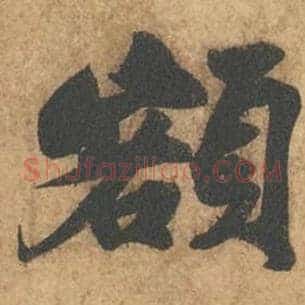 額
Shufazillao.COM